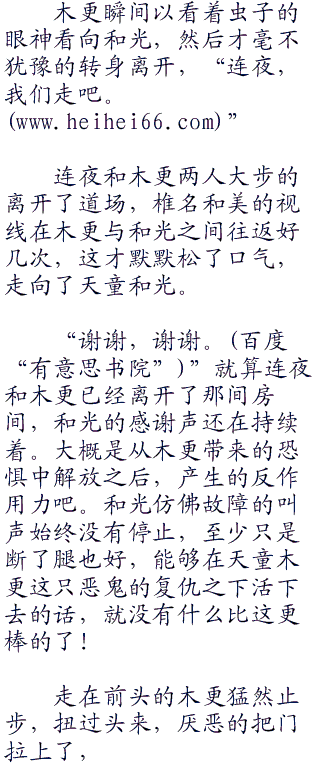 木更瞬间以看着虫子的
眼神看向和光，然后才毫不
犹豫的转身离开，“连夜，
我们走吧。
(www.heihei66.com)”
连夜和木更两人大步的
离开了道场，椎名和美的视
线在木更与和光之间往返好
几次，这才默默松了口气，
走向了天童和光。
“谢谢，谢谢。(百度
“有意思书院”)”就算连夜
和木更已经离开了那间房
间，和光的感谢声还在持续
着。大概是从木更带来的恐
惧中解放之后，产生的反作
用力吧。和光仿佛故障的叫
声始终没有停止，至少只是
断了腿也好，能够在天童木
更这只恶鬼的复仇之下活下
去的话，就没有什么比这更
棒的了！
走在前头的木更猛然止
步，扭过头来，厌恶的把门
拉上了，